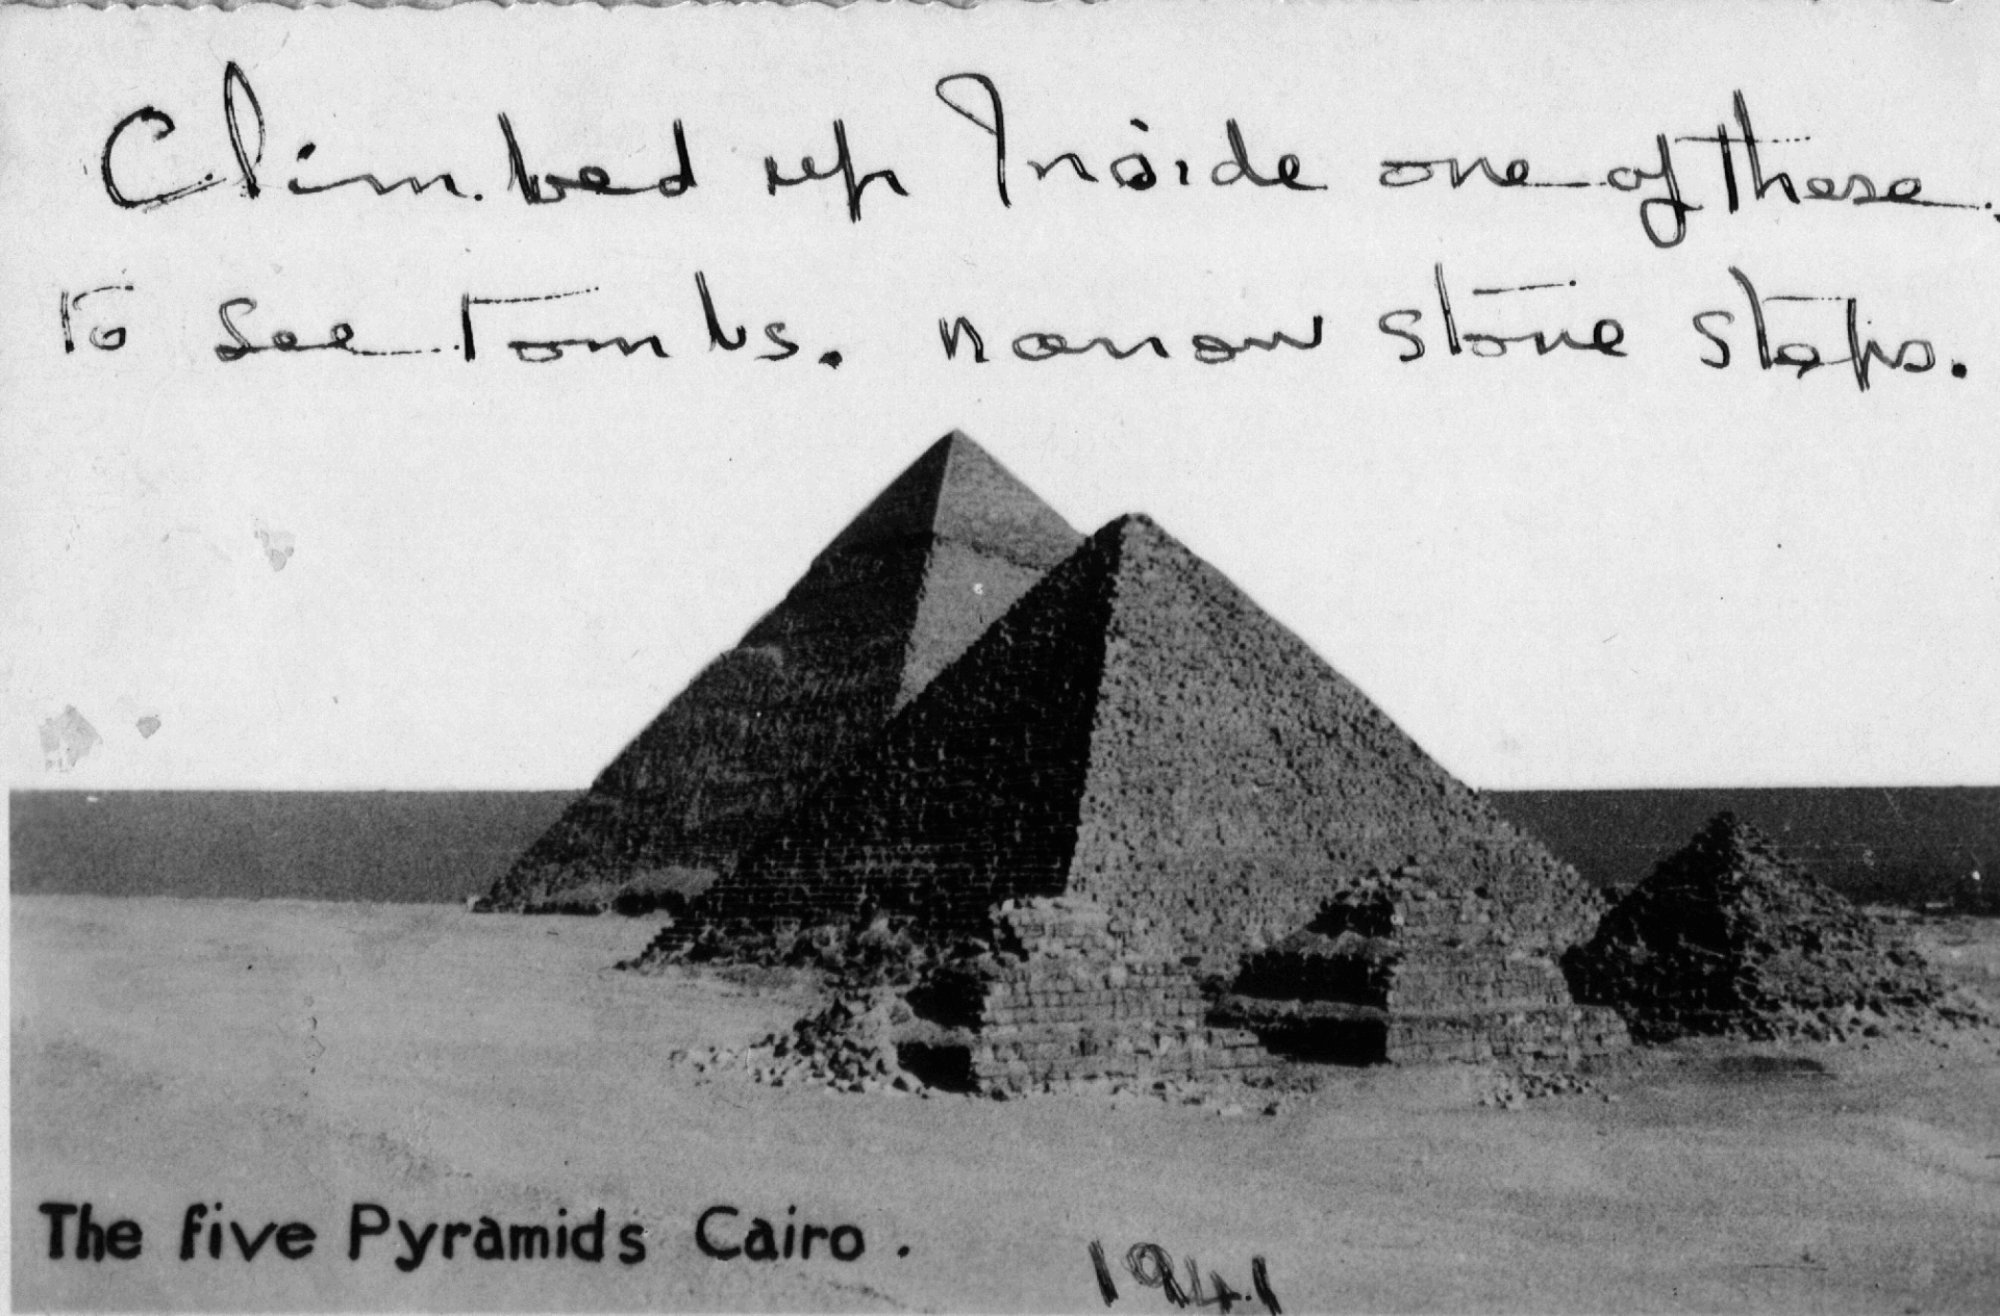 Climbed up Inside one of these.
To see tombs. narrow stone steps.
The five Pyramids Cairo.
1941